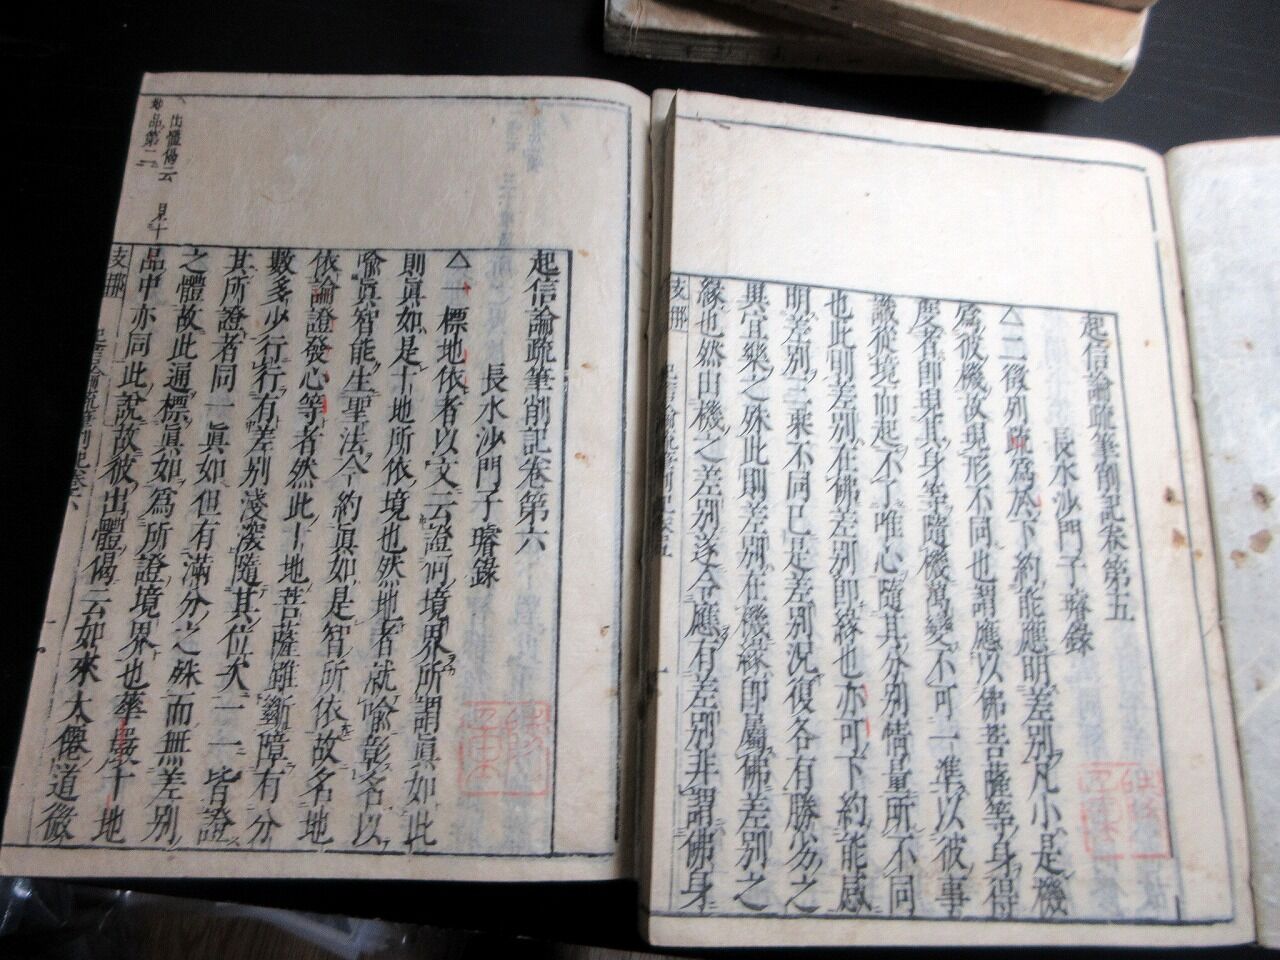 起信論疏筆削記卷第五
長水沙門子璿錄
△二徵列疏爲於下約能應明差別凡小是機
爲彼機故現形不同也謂應以佛菩薩等身得
度者即現其身等隨機萬變不可一準以彼事
識從境而起不了唯心隨其分別情量所不同
也此明差別在佛差別即緣也亦可下約能感
明差別三乘不同已是差別況復各有勝劣之
異宜樂之殊此則差別在機緣即屬佛差別之
緣也然由機之差別遂令應有差別非謂佛身
支那
起信論疏筆削記卷五
一
起信論疏筆削記卷第六
長水沙門子璿錄
△一標地依者以文云證何境界所謂眞如此
則眞如是十地所依境也然地者就喻彰名以
喻眞智能生聖法今約眞如是智所依故名地
依論證發心等者然此十地菩薩雖斷障有分
數多少行行有差別淺深隨其位次一一皆證
其所證者同一眞如但有滿分之殊而無差別
之體故此通標眞如爲所證境界也華嚴十地
品中亦同此說故彼出體偈云如來大僊道微
出體偈云 見十
地品第二
支那
起信論疏筆削記卷六